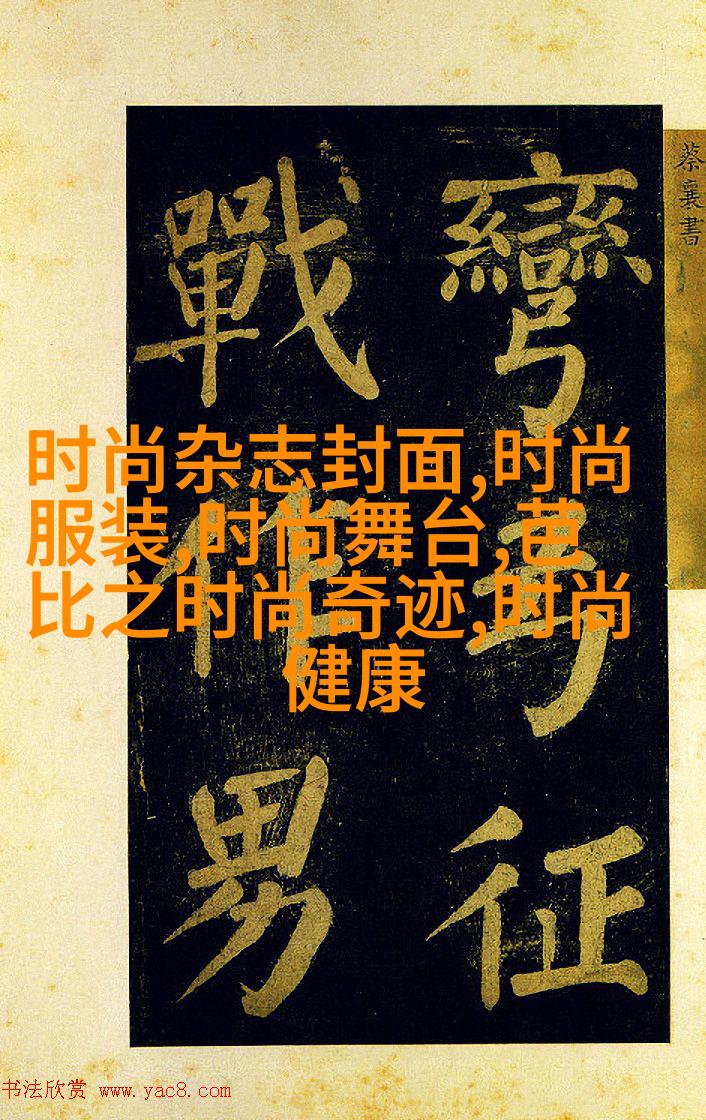 蔡襄書
彎弓征
戰作男
时尚杂志封面,时尚
服装,时尚舞台,芭
比之时尚奇迹,时尚
健康
书法欣赏 www.yac8.com